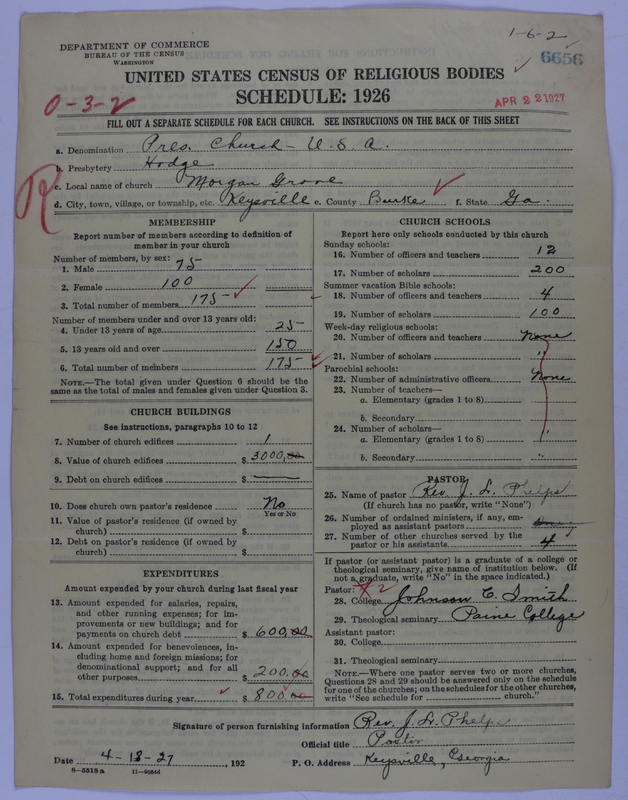 DEPARTMENT OF COMMERCE
BUREAU OF THE CENSUS
WASHINGTON
1-6-2
6656
UNITED STATES CENSUS OF RELIGIOUS BODIES
SCHEDULE: 1926
0-3-2
APR 22 1927
FILL OUT A SEPARATE SCHEDULE FOR EACH CHURCH. SEE INSTRUCTIONS ON THE BACK OF THIS SHEET
a. Denomination Pres. Church - U.S.A.
b. Presbytery Hodge
c. Local name of church Morgan Grove
d. City, town, village, or township, etc. Keysville e. County Burke f. State Ga.
R
MEMBERSHIP
Report number of members according to definition of
member in your church
Number of members, by sex:
1. Male 75
2. Female 100
3. Total number of members 175
Number of members under and over 13 years old:
4. Under 13 years of age 25
5. 13 years old and over 150
6. Total number of members 175
NOTE.—The total given under Question 6 should be the
same as the total of males and females given under Question 3.
CHURCH BUILDINGS
See instructions, paragraphs 10 to 12
7. Number of church edifices 1
8. Value of church edifices $ 3000,00
9. Debt on church edifices $
10. Does church own pastor's residence No
Yes or No
11. Value of pastor's residence (if owned by
church) $
12. Debt on pastor's residence (if owned by
church) $
EXPENDITURES
Amount expended by your church during last fiscal year
13. Amount expended for salaries, repairs,
and other running expenses; for im-
provements or new buildings; and for
payments on church debt $ 600,00
14. Amount expended for benevolences, in-
cluding home and foreign missions; for
denominational support; and for all
other purposes $ 200.00
15. Total expenditures during year $ 800.00
CHURCH SCHOOLS
Report here only schools conducted by this church
Sunday schools:
16. Number of officers and teachers 12
17. Number of scholars 200
Summer vacation Bible schools:
18. Number of officers and teachers 4
19. Number of scholars 100
Week-day religious schools:
20. Number of officers and teachers None
21. Number of scholars "
Parochial schools:
22. Number of administrative officers None
23. Number of teachers—
a. Elementary (grades 1 to 8)
b. Secondary
24. Number of scholars—
a. Elementary (grades 1 to 8) "
b. Secondary "
PASTOR
25. Name of pastor Rev. J. L. Phelps
(If church has no pastor, write "None")
26. Number of ordained ministers, if any, em-
ployed as assistant pastors
27. Number of other churches served by the
pastor or his assistants 4
If pastor (or assistant pastor) is a graduate of a college or
theological seminary, give name of institution below. (If
not a graduate, write "No" in the space indicated.)
Pastor: 2
28. College Johnson C. Smith
29. Theological seminary Paine College
Assistant pastor:
30. College
31. Theological seminary
NOTE.—Where one pastor serves two or more churches,
Questions 28 and 29 should be answered only on the schedule
for one of the churches; on the schedules for the other churches,
write "See schedule for church."
Signature of person furnishing information Rev. J. L. Phelps
Official title Pastor
Date 4-18-27, 192 P. O. Address Keysville, Georgia
8-5518a